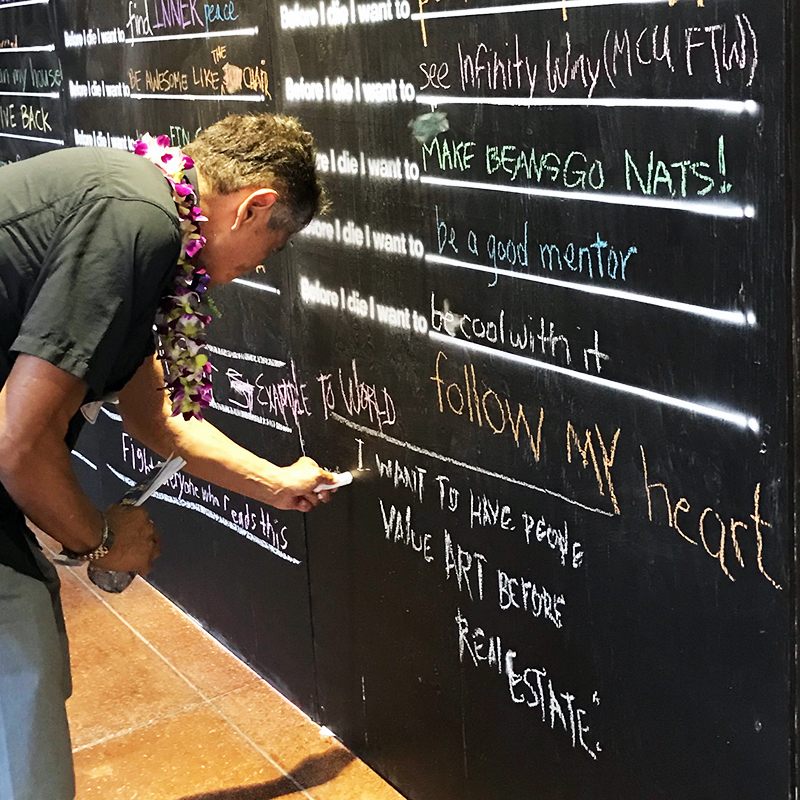 find INNER peace
Before I die I want to
BE AWESOME LIKE THE CHAIR
Before I die I want to
my house
GIVE BACK
Before I die I want to
Before I die I want to
see Infinity War (MCU FTW)
Before I die I want to
MAKE BEANS GO NATS!
Before I die I want to
be a good mentor
Before I die I want to
be cool with it
Before I die I want to
follow MY heart
EXAMPLE TO WORLD
Fight everyone who reads this
I WANT TO HAVE PEOPLE
VALUE ART BEFORE
REAL ESTATE."